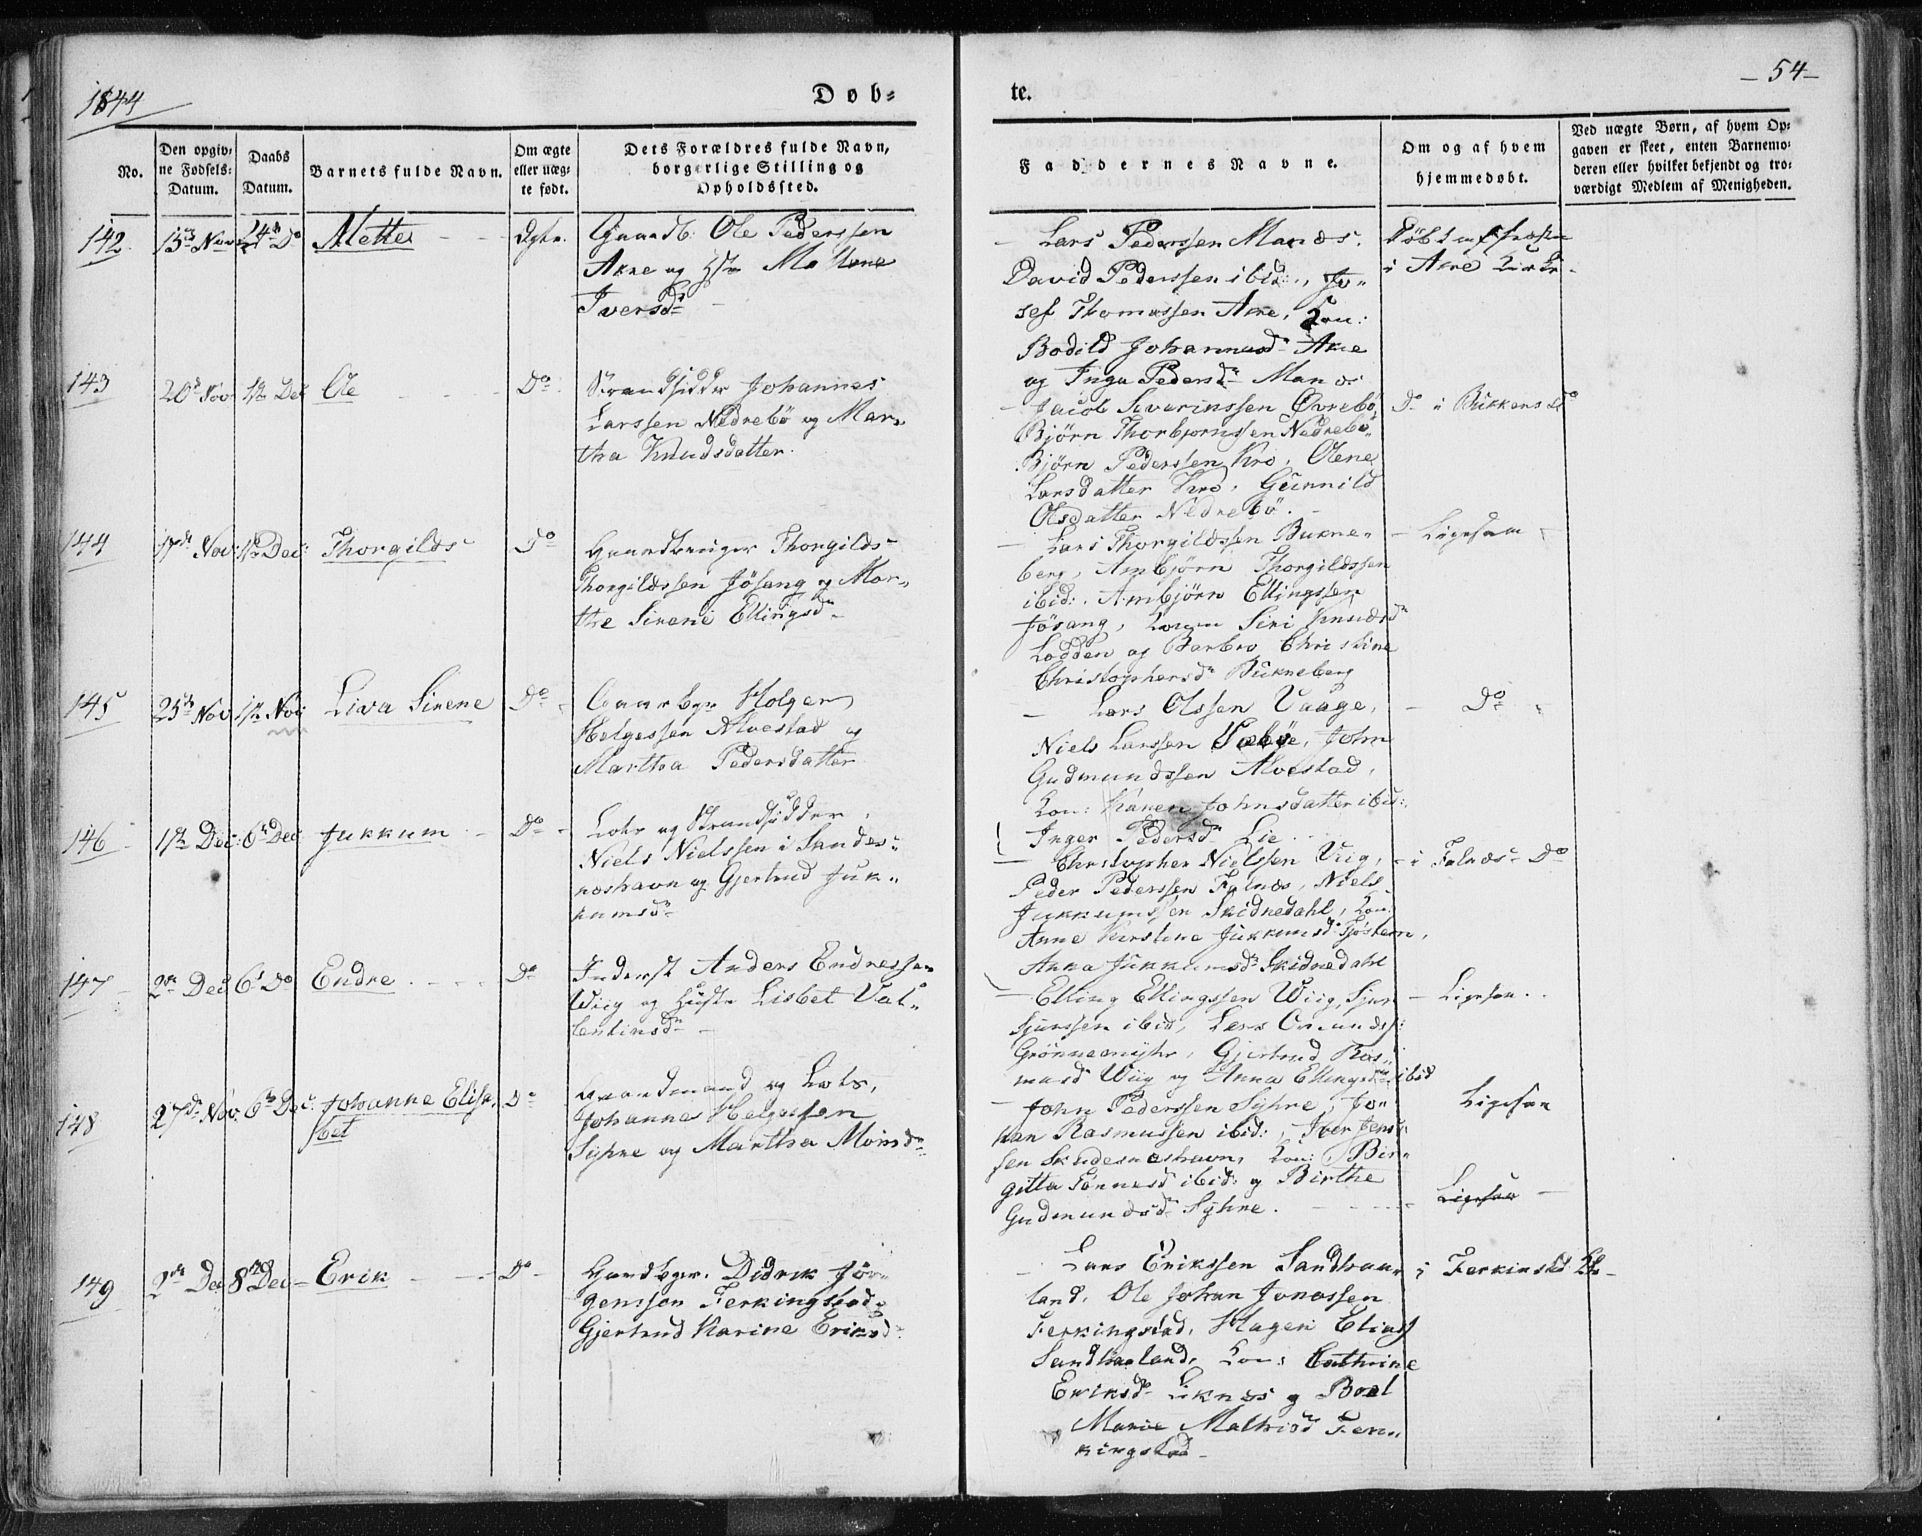 1844
Døb-
te.
- 54 -
No.
Den opgiv-
ne Fødsels-
Datum.
Daabs
Datum.
Barnets fulde Navn.
Om ægte
eller uæg-
te født.
Dets Forældres fulde Navn,
borgerlige Stilling og
Opholdssted.
Faddernes Navne.
Om og af hvem
hjemmedøbt.
Ved uægte Børn, af hvem Op-
gaven er skeet, enten Barnemo-
deren eller hvilket bekjendt og tro-
værdigt Medlem af Menigheden.
142. 15de Nov 24de Do Mette
Ole Pederssen
Akre og
Iversdr
Lars Pederssen Manæs.
David Pederssen ibid:, Jo-
sef Thomassen Akre, Kon:
Bodild Johannesdr Akre
og Inga Pedersdr Manæs
i Akre Kirke
143 20de Nov 1ste Dec Ole Do
Strandsidder Johannes
Larssen Nedrebö og Mar-
tha Knudsdatter.
Jacob Severinssen Øvrebö
Björn Thorbjornssen Nedrebö
Björn Pederssen Kro, Olene
Larsdatter Kro, Gunnild
Olsdatter Nedrebö.
Do i Bukken
144 17de Nov: 1ste Dec: Thorgilds Do
Thorgilds
Thorgildssen Jösang og Mar-
the Sirene Ellingsdr
Lars Thorgildssen Bukne-
berg, Arnbjörn Thorgildssen
ibid:. Arnbjörn Ellingssen
Jösang, Konen Siri Knudsdr
Lodden og Barbro Christine
Christophersdr Bukneberg
Ligesaa
145 25de Nov 1ste Nov Liva Sirene Do
Gaardbgr Holger
Helgessen Alvestad og
Martha Pedersdatter
Lars Olssen Vaage,
Niels Larssen Sæböe, John
Gudmundssen Alvestad,
Kon: Karen Johnsdatter ibid:
Inger Pedersdr Lie
Do
146 1ste Dec: 6te Dec Jukkum Do
Lods og Strandsidder,
Niels Nielssen i Skudes-
næshavn og Gjertrud Juk-
kumsdr
Christopher Nielssen Viig,
Peder Pederssen Falnæs, Niels
Jukkumssen Skidnedahl, Kon:
Anne Kirstine Jukkumsdr
Anna Jukkumsdr Skidnedahl
i Falnæs Do
147 2den Dec 6te Do Endre Do
Inderst Anders Endressen
Wiig og Hustr Lisbet Val-
lentinsdr
Elling Ellingssen Wiig, Sjur
Sjurssen ibid, Lars
Grönnemyhr, Gjertrud Ras-
musd Wiig og Anna Ellingsdr ibid
Ligesaa
148 27de Nov. 6te Dec: Johanne Elisa-
bet
Do
Gaardmand og Lods,
Johannes Helgessen
Syhre og Martha Monsdr
John Pederssen Syhre, Jo-
han Rasmussen ibid:, Iver Jens-
sen Skudesnæshavn, Kon: Bir-
gitta Tønnesd ibid: og Birthe
Gudmundsdr Syhre.
Ligesaa
Ligesaa
149 2den Dec 8de Dec Erik Do
Gaardbgr. Didrik Jör-
genssen Ferkingstad og
Gjertrud Karine Eriksdr
Lars Erikssen Sandhaa-
land, Ole Johan Jonassen
Ferkingstad, Hagen Elias
Sandhaaland, Kon: Cathrine
Eriksdr Liknes og Boel
Marie Mathisd Fer-
kingstad
i Ferkinstd